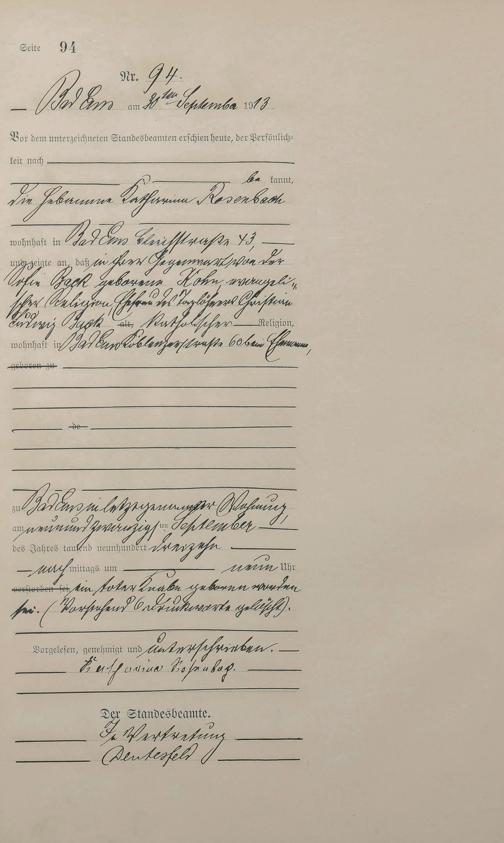 Seite 94
Nr. 94.
Bad Ems am 30ten September 1913
Vor dem unterzeichneten Standesbeamten erschien heute, der Persönlich-
keit nach
be kannt,
die Hebamme Katharina Rosenbach
wohnhaft in Bad Ems Bleichstraße 43,
und zeigte an, daß in ihrer Gegenwart von der
Sofie Back geborene Kohn, evangeli-
scher Religion, Ehefrau des Taglöhners Christian
Ludwig Back alt, katholischer Religion,
wohnhaft in Bad Ems Koblenzerstraße 60 beim Ehemann,
geboren zu
de
zu Bad Ems in letztgenannter Wohnung,
am neunundzwanzigsten September
des Jahres tausend neunhundert dreizehn
nach mittags um neun Uhr
verstorben sei, ein toter Knabe geboren worden
sei. (Vorstehend 6 Druckworte gelöscht).
Vorgelesen, genehmigt und unterschrieben.
Katharina Rosenbach.
Der Standesbeamte.
In Vertretung